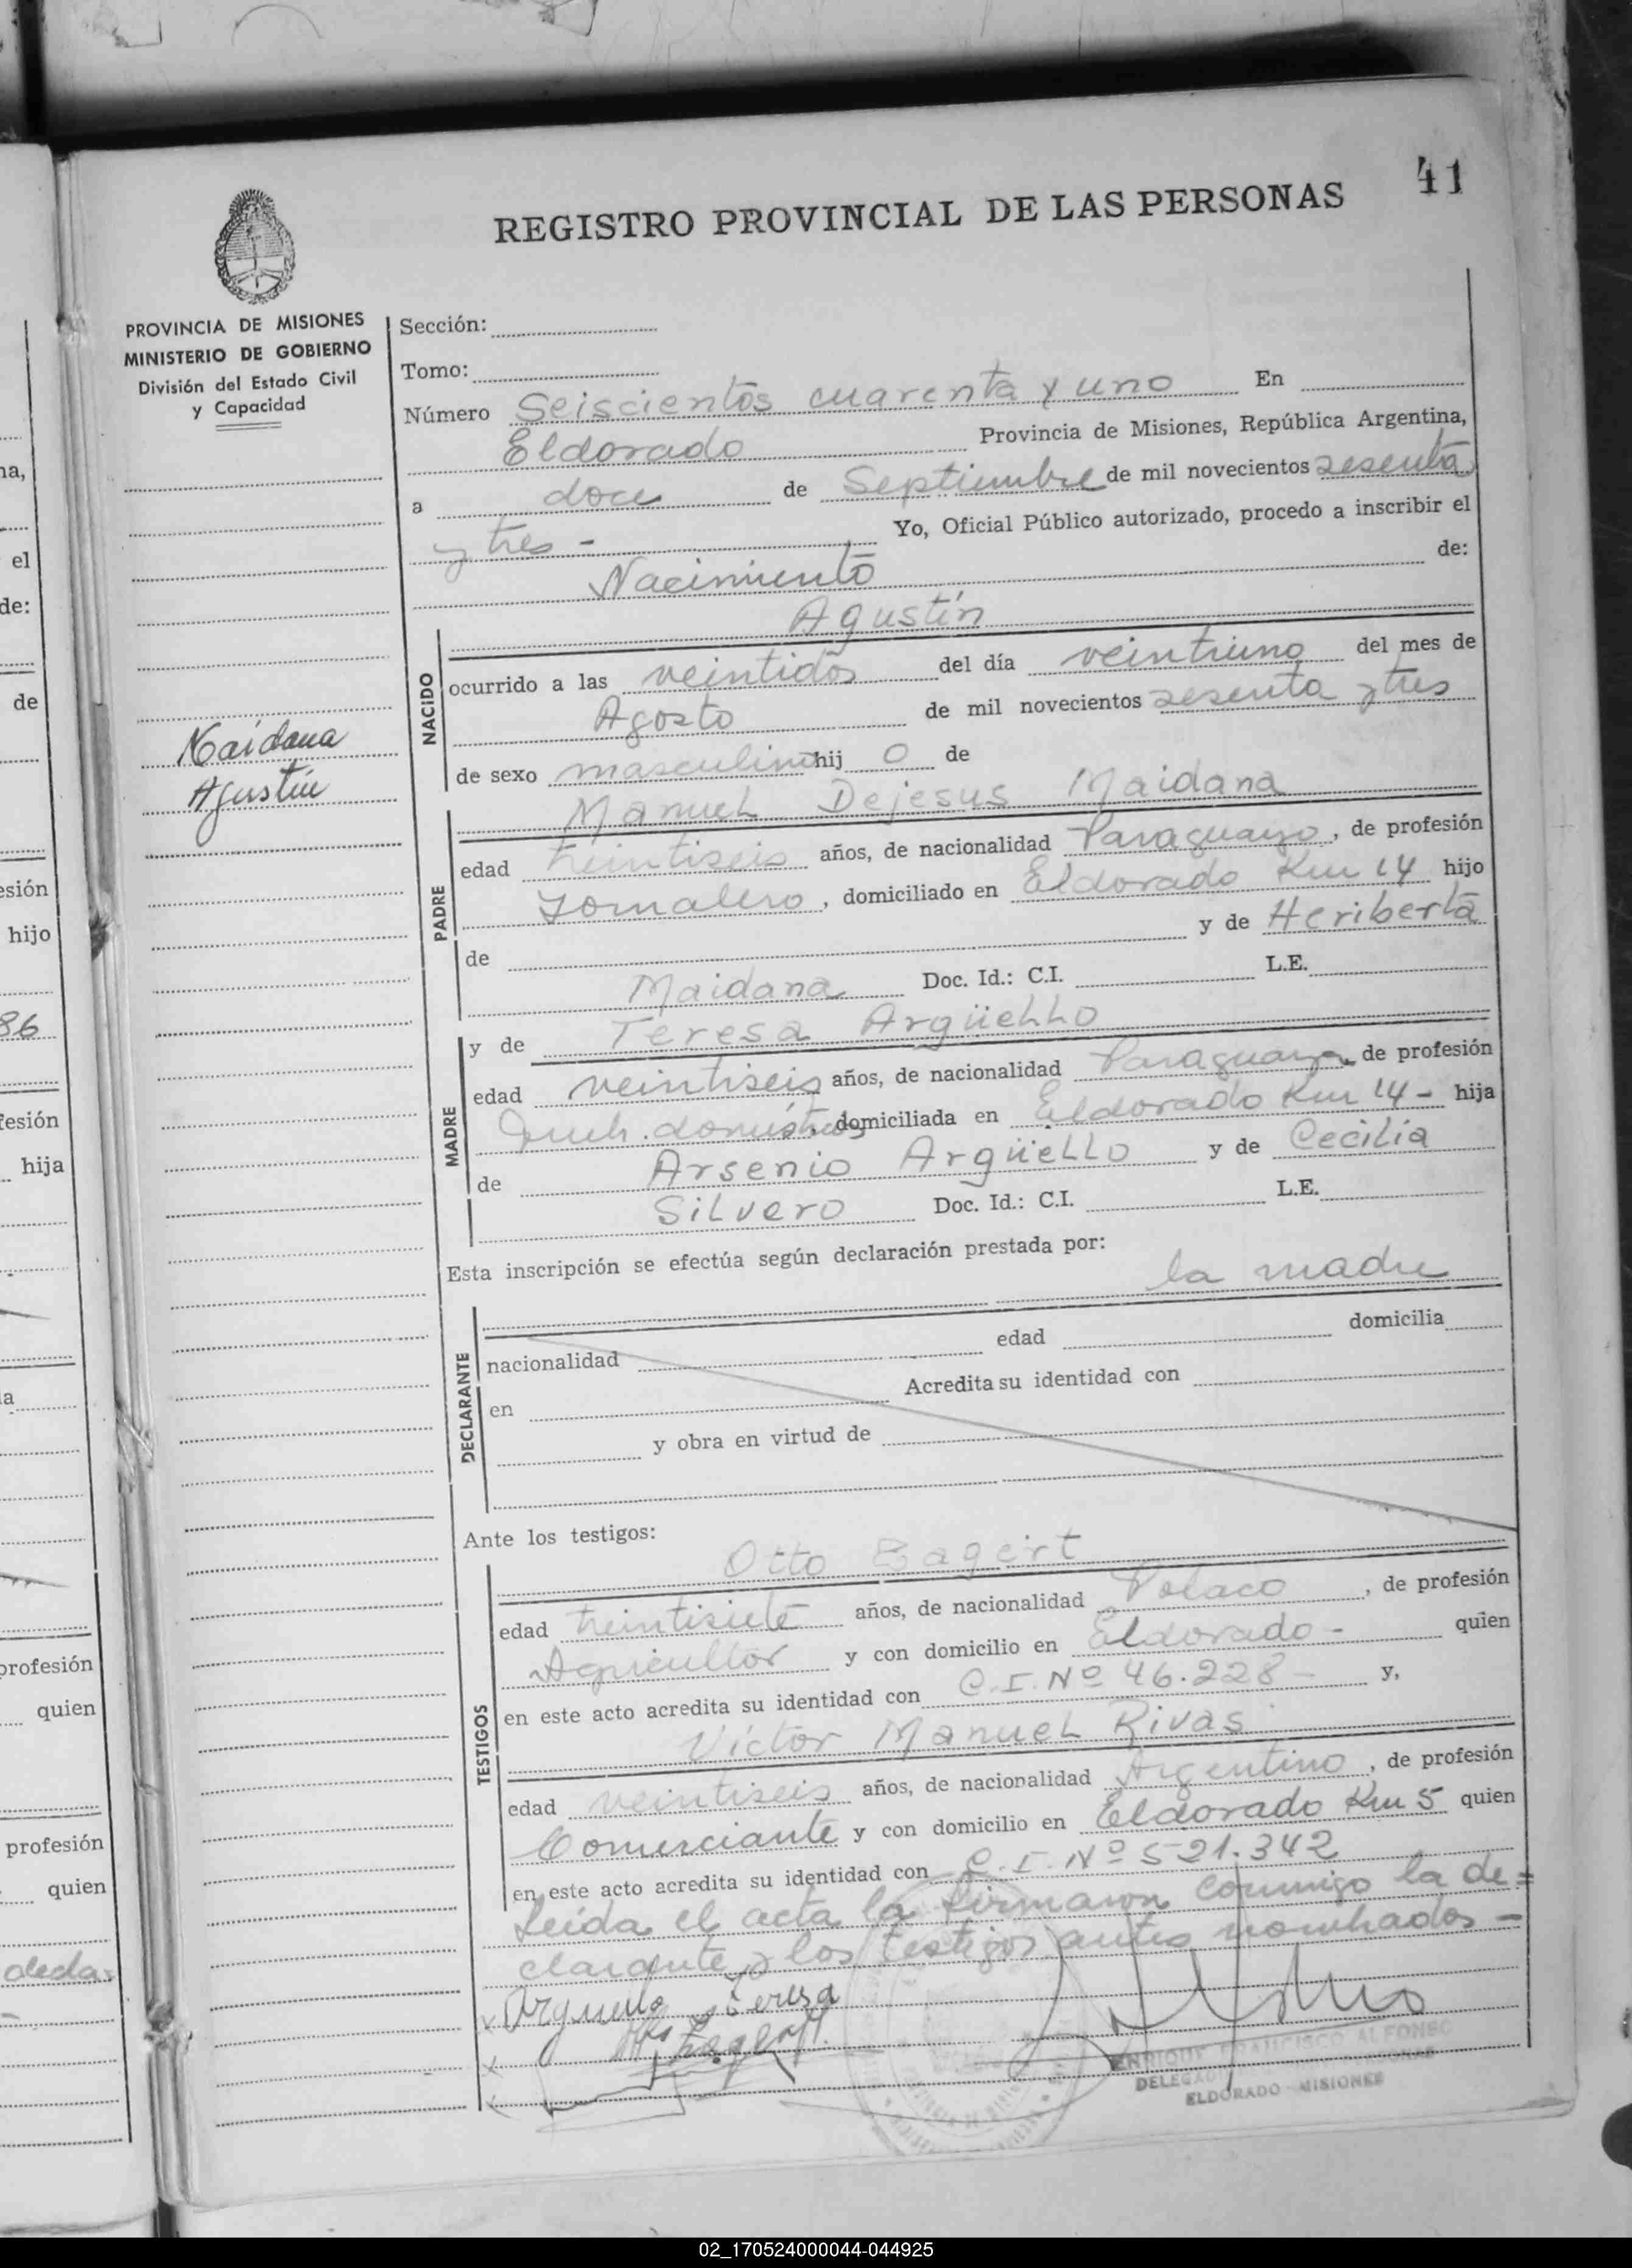 41
REGISTRO PROVINCIAL DE LAS PERSONAS
PROVINCIA DE MISIONES
MINISTERIO DE GOBIERNO
División del Estado Civil
y Capacidad
Sección:
Tomo:
Número Seiscientos cuarenta y uno En
Eldorado Provincia de Misiones, República Argentina,
a doce de Septiembre de mil novecientos sesenta
y tres - Yo, Oficial Público autorizado, procedo a inscribir el
Nacimiento de:
Agustín
NACIDO
ocurrido a las veintidos del día veintiuno del mes de
Agosto de mil novecientos sesenta y tres
de sexo masculino hij o de
Maidana
Agustín
Manuel Dejesus Maidana
PADRE
edad treintiseis años, de nacionalidad Paraguayo, de profesión
Jornalero, domiciliado en Eldorado Km 14 hijo
de y de Heriberta
Maidana Doc. Id.: C.I. L.E.
y de Teresa Argüello
MADRE
edad veintiseis años, de nacionalidad Paraguaya de profesión
domésticos, domiciliada en Eldorado Km 14 - hija
de Arsenio Argüello y de Cecilia
Silvero Doc. Id.: C.I. L.E.
Esta inscripción se efectúa según declaración prestada por:
la madre
DECLARANTE
nacionalidad edad domicilia
en Acredita su identidad con
y obra en virtud de
Ante los testigos:
Otto Bagert
TESTIGOS
edad treintisiete años, de nacionalidad Polaco, de profesión
Agricultor y con domicilio en Eldorado - quien
en este acto acredita su identidad con C.I. Nº 46.228 - y,
Victor Manuel Rivas
edad veintiseis años, de nacionalidad Argentino, de profesión
Comerciante y con domicilio en Eldorado Km 5 quien
en este acto acredita su identidad con C.I. Nº 521.342
Leída el acta la firmaron conmigo la de=
clarante y los testigos antes nombrados -
Arguello Teresa
ENRIQUE FRANCISCO ALFONSO
ELDORADO - MISIONES
na,
el
de:
de
esión
hijo
86
fesión
hija
profesión
quien
profesión
quien
02_170524000044-044925